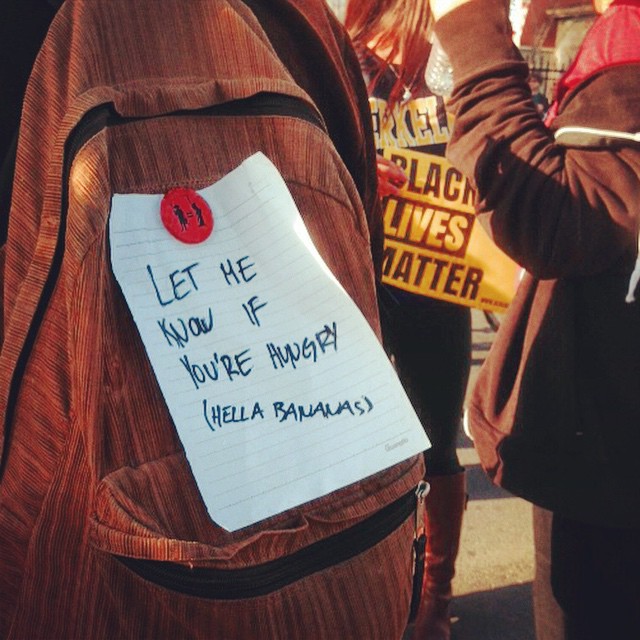 LET ME
KNOW IF
YOU'RE HUNGRY
(HELLA BANANAS)
BLACK
LIVES
MATTER